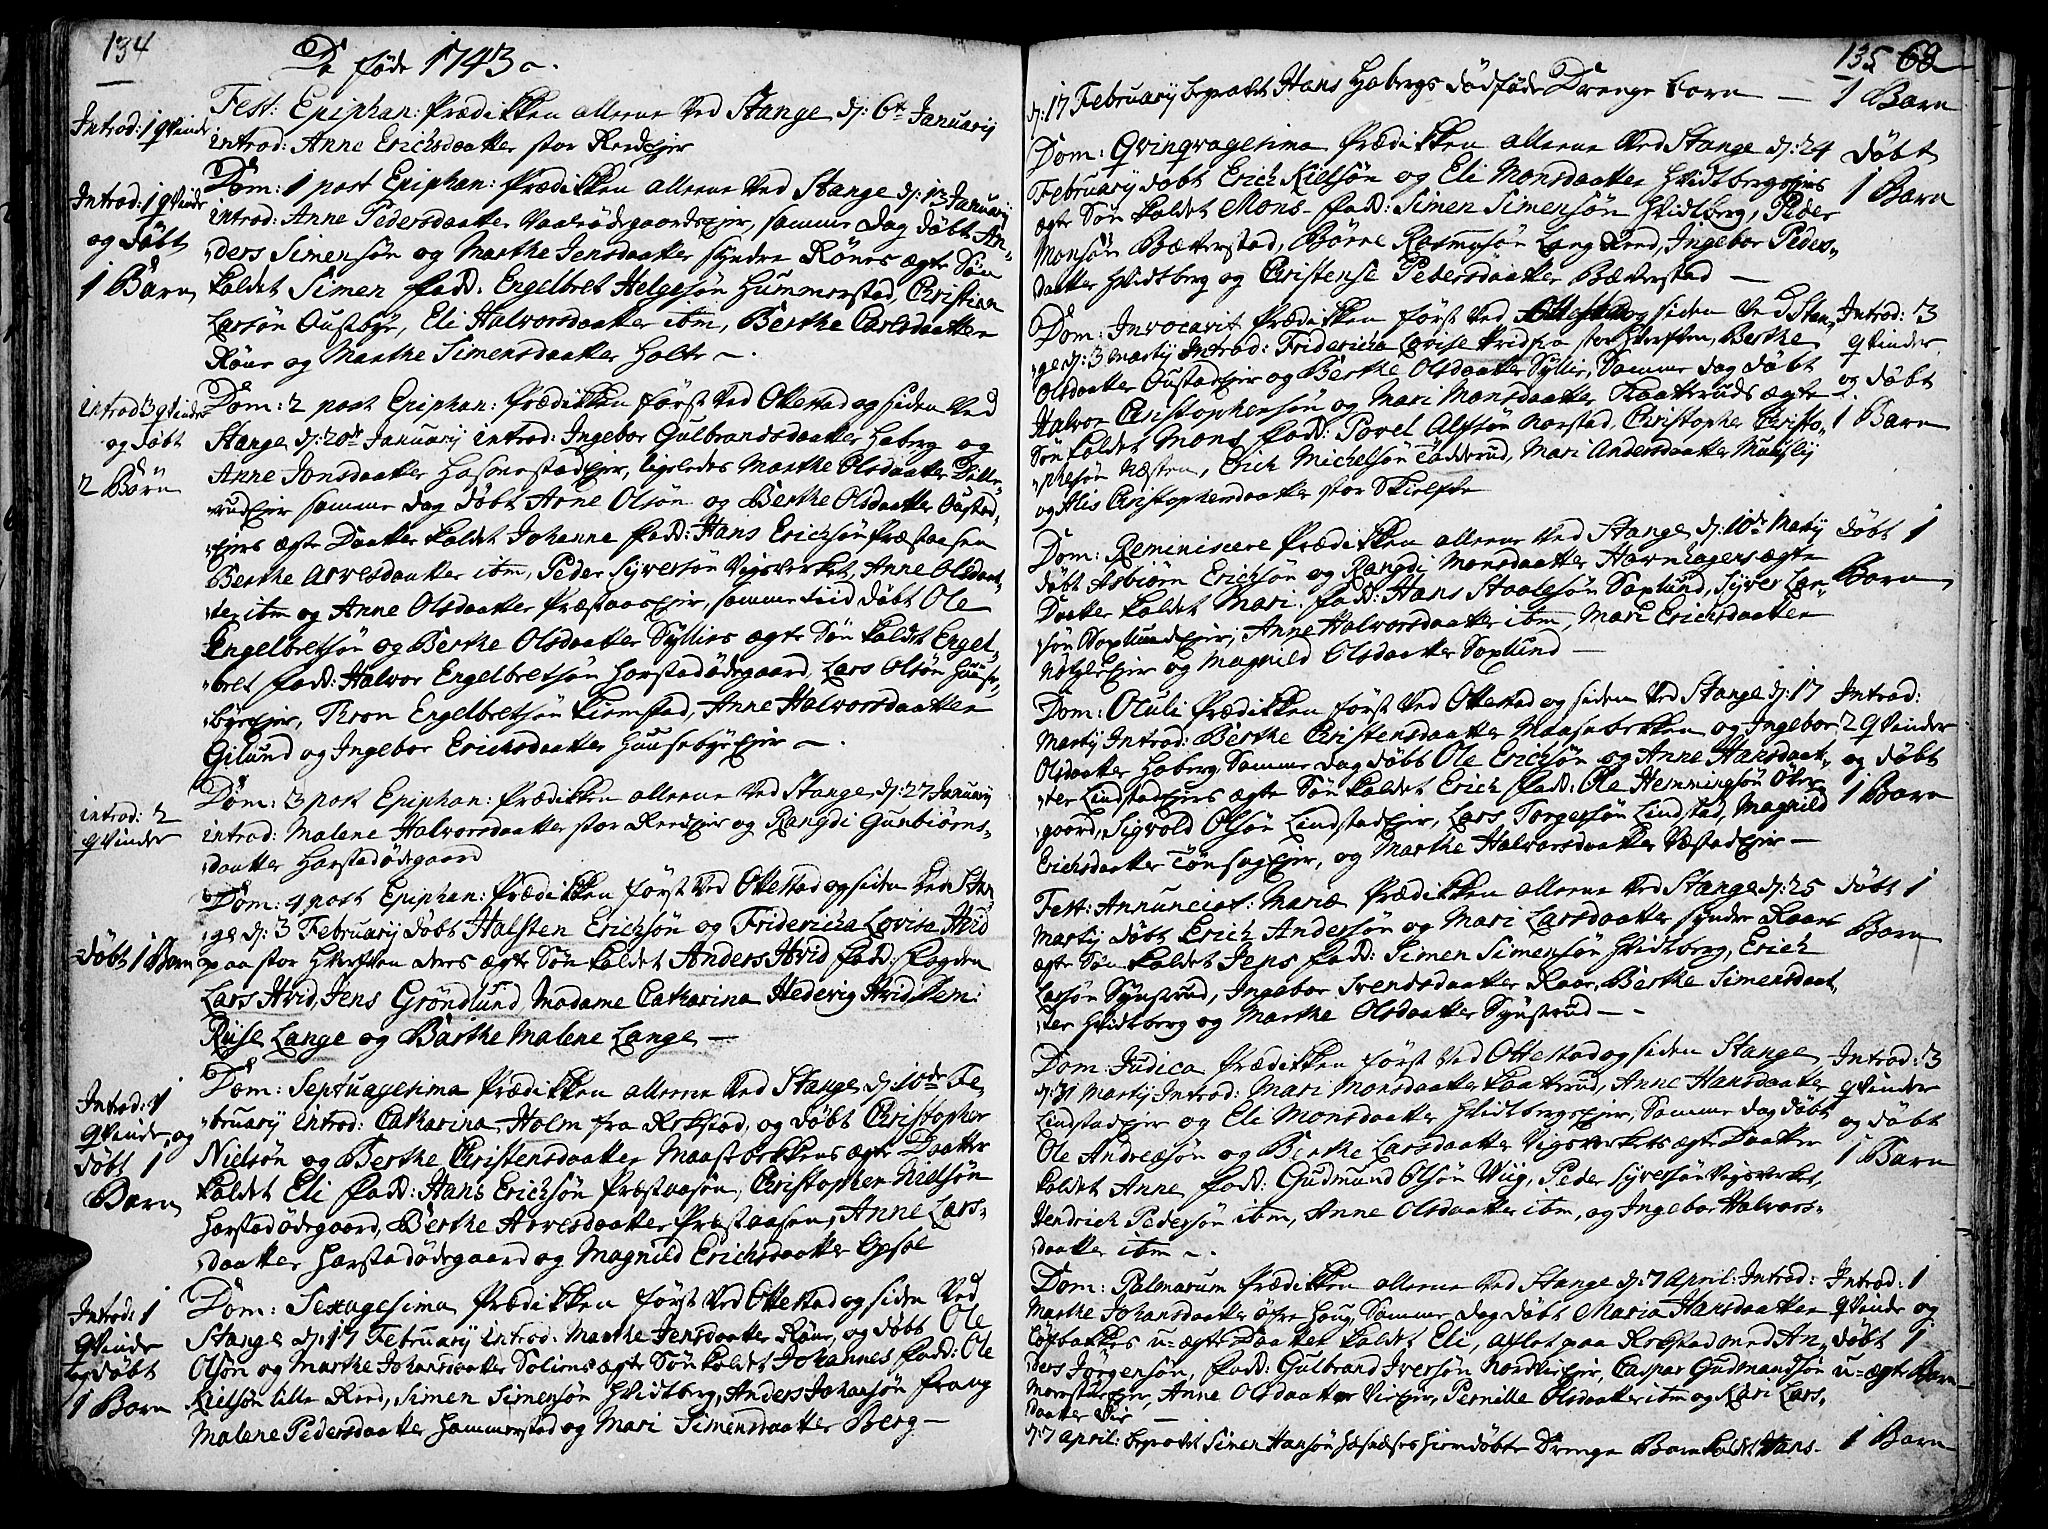 134
De føde 1743
Introd: 1 qvinde
Fest: Epiphan: Prædikken allene Ved Stange d: 6te Januarij
introd: Anne Erichsdaatter stor Reedejer
Introd: 1 qvinde
og døbt
1 Barn
Dom: 1 post Epiphan: Prædikken allene Ved Stange d: 13 Januarij
introd: Anne Pedersdaatter samme dag døbt An-
ders Simensøn og Marthe Jensdaatter Søndre Rönes ægte Søn
kaldet Simen fadd: Engelbret Helgesøn Hummerstad, Christian
Larsøn Oustbye, Eli Halvorsdaatter ibm, Berthe Carlsdaatter
Röne og Marthe Simensdaatter Holte
introd 3 qvinder
og døbt
2 Børn
Dom: 2 post Epiphan: Prædikken først Ved Ottestad og siden Ved
Stange d: 20de Januarij introd: Ingebor Gulbrandsdaatter Hoberg og
Anne Jonsdaatter ligeledes Marthe Olsdaatter
samme dag døbt Arne Olsøn og Berthe Olsdaatter Oustad
ejers ægte Daatter kaldet Johanne fadd: Hans Erichsøn Præstaasen
Berthe Arvesdaatter ibm, Peder Syversøn Vigsverket, Anne Olsdaat-
ter ibm og Anne Olsdaatter samme tiid døbt Ole
Engelbretsøn og Berthe Olsdaatter Syllies ægte Søn kaldt Engel-
bret fadd: Halvor Engelbretsøn Horstadødegaard, Lars Olsøn Huuse-
byeejer, Tron Engelbretsøn Kiemstad, Anne Halvorsdaatter
Gilund og Ingebor Erichsdaatter Huusebyeejer
introd: 2
qvinder
Dom: 3 post Epiphan: Prædikken allene Ved Stange d: 27 Januarij
introd: Malene Halvorsdaatter stor Reedejer og Rangdi Gunbiørns-
daatter Horstadødegaard
døbt 1 Barn
Dom: 4 post Epiphan: Prædikken først Ved Ottestad og siden Ved Stan
ge d: 3 Februarij døbt Halsten Erichsøn og Fridericha Lovise Hvid
paa stor Hverven deres ægte Søn kaldet Anders Hvid fadd: Fogden
Lars Hvid, Jens Grøndlund Madame Catharina Hedevig Hvid
Riise Lange og Barthe Malene Lange
Introd: 1
qvinde og
døbt 1
Barn
Dom: Septuagesima Prædikken allene Ved Stange d: 10de Fe
bruarij introd: Catharina Holm fra og døbt Christopher
Nielsøn og Berthe Christensdaatter Maasebekkens ægte Daatter
kaldet Eli fadd: Hans Erichsøn Præstaasøn, Christopher Nielsøn
Horstadødegaard, Berthe Arvesdaatter Præstaasen, Anne Lars-
daatter Horstadødegaard og Magnild Erichsdaatter Opsal
Introd: 1
qvinde
og døbt
1 Barn
Dom: Sexagesima Prædikken først Ved Ottestad og siden Ved
Stange d: 17 Februarij introd: Marthe Jensdaatter Röne, og døbt Ole
Olsøn og Marthe Johansdaatter ægte Søn kaldet Johannes fadd: Ole
Kielsøn lille Reed, Simen Simensøn Hvidtberg, Anders Johansøn Frang
Malene Pedersdaatter Hommerstad og Mari Simensdaatter Berg
135 68
d: 17 Februarij begravet Hans Hobergs dødføde Drenge barn 1 Barn
Dom: Qvinqvagesima Prædikken allene Ved Stange d: 24
Februarij døbt Erich Kielsøn og Eli Monsdaatter Hvidtbergsejes
ægte Søn kaldet Mons fadd: Simen Simensøn Hvidtberg, Peder
Monsøn Bækkerstad, Børre Rasmusøn Lang Reed, Ingebor Peders-
daatter Hvidtberg og Christense Pedersdaatter Bækkerstad
døbt
1 Barn
Dom: Invocavit Prædikken først Ved Ottestad og siden Ved Stan
ge d: 3 Martij Introd: Fridericha Lovise Hvid fra stor Hverfven, Berthe
Olsdaatter Oustadejer og Berthe Olsdaatter Syllie, Samme dag døbt
Halvor Christophersøn og Mari Monsdaatter Kaatteruds ægte
Søn kaldet Mons fadd: Povel Alfsøn Norstad, Christopher Christo-
phersøn Næsten, Erich Michelsøn Tødderud, Mari Andersdaatter
og Alis Christophersdaatter stor Skielfte
Introd: 3
qvinder
og døbt
1 Barn
Dom: Reminiscere Prædikken allene Ved Stange d: 10de Martij
døbt Asbiørn Erichsøn og Rangdi Monsdaatter Havnhagens ægte
Daatter kaldet Mari fadd: Hans Staalesøn Soxlund, Syver Lar-
søn Soxlundejer, Anne Halvorsdaatter ibm, Mari Erichsdaatter
og Magnild Olsdaatter Soxlund
døbt 1
Barn
Dom: Oculi Prædikken først Ved Ottestad og siden Ved Stange d: 17
Martij Introd: Berthe Christensdaatter Maasebekken og Ingebor
Olsdaatter Hoberg Samme dag døbt Ole Erichsøn og Anne Hansdaat-
ter Lindstadejers ægte Søn kaldet Erich fadd: Ole Hemmingsøn Öde-
gaard, Sigvold Olsøn Lindstadejer, Lars Torgersøn Lindstad, Magnild
Erichsdaatter og Marthe Halvorsdaatter Væstadejer
Introd:
2 qvinder
og døbt
1 Barn
Fest: Annunciat: Mariæ Prædikken allene Ved Stange d: 25
Martij døbt Erich Andersøn og Mari Larsdaatter Søndre Raars
ægte Søn kaldet Jens fadd: Simen Simensøn Hvidtberg, Erich
Larsøn Synsrud, Ingebor Svendsdaatter Raar, Berthe Simensdaat-
ter Hvidtberg og Marthe Olsdaatter Synsrud
døbt 1
Barn
Dom: Judica Prædikken først Ved Ottestad og siden Stange
d: 31 Martij Introd: Mari Monsdaatter Kaatterud, Anne Hansdaatter
Lindstadejer og Eli Monsdaatter Hvidtbergsejer, Samme dag døbt
Ole Andreæsøn og Berthe Larsdaatter Vigsverkets ægte Daatter
kaldet Anne fadd: Gudmund Olsøn Wiig, Peder Syversøn Vigsverket,
Hendrich Pedersøn ibm, Anne Olsdaatter ibm, og Ingebor Halvors-
daatter ibm
Introd: 3
qvinder
og døbt
1 Barn
Dom: Palmarum Prædikken allene Ved Stange d: 7 April: Introd:
Marthe Johansdaatter Samme dag døbt Maria Hansdaatter
u-ægte Daatter kaldet Eli, aflet paa med An-
ders Jörgensøn, fadd: Gulbrand Iversøn Caspar Gudmandsøn
Anne Olsdaatter Pernille Olsdaatter ibm og Kari Lars-
daatter
Introd: 1
qvinde og
døbt 1
u-ægte Barn
d: 7 April: begravet Simen Hansøn hiemdøbte Drenge Barn kaldet Hans 1 Barn